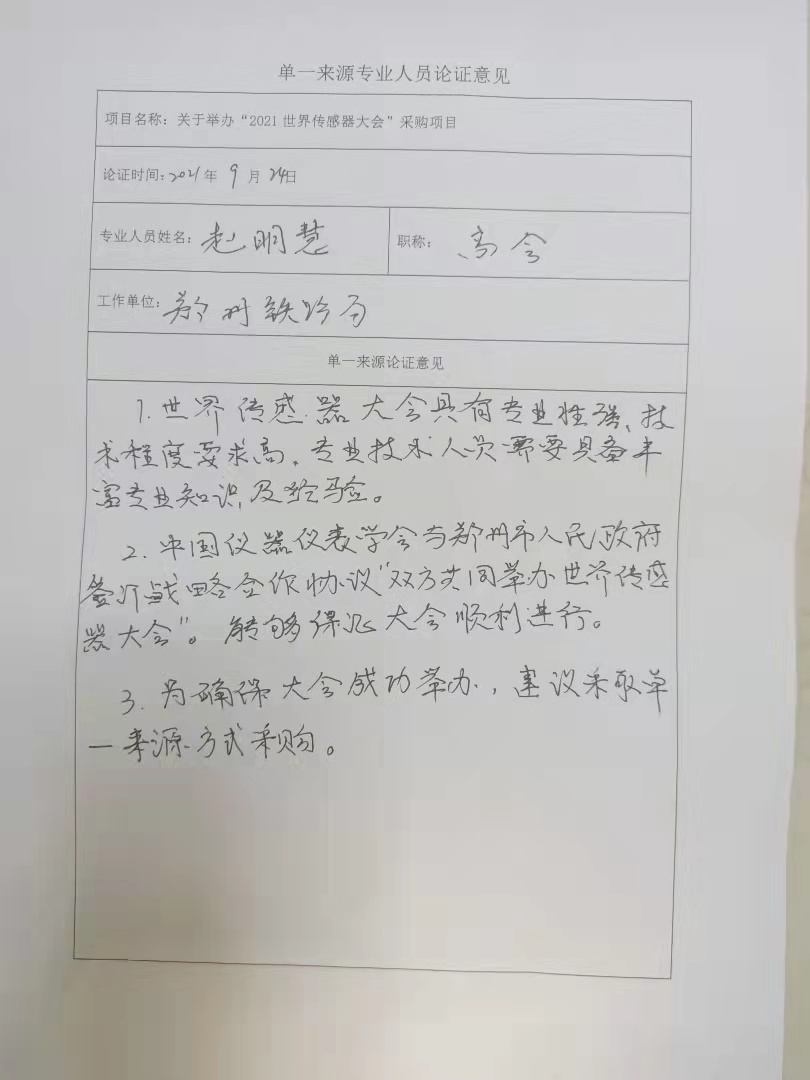 单一来源专业人员论证意见
项目名称：关于举办“2021世界传感器大会”采购项目
论证时间：2021年 9月 24日
专业人员姓名：赵明慧 职称：高会
工作单位：郑州铁路局
单一来源论证意见
1.世界传感器大会具有专业性强、技
术程度要求高，专业技术人员需要具备丰
富专业知识及经验。
2.中国仪器仪表学会与郑州市人民政府
签订战略合作协议“双方共同举办世界传感
器大会”。能够保证大会顺利进行。
3.为确保大会成功举办，建议采取单
一来源方式采购。